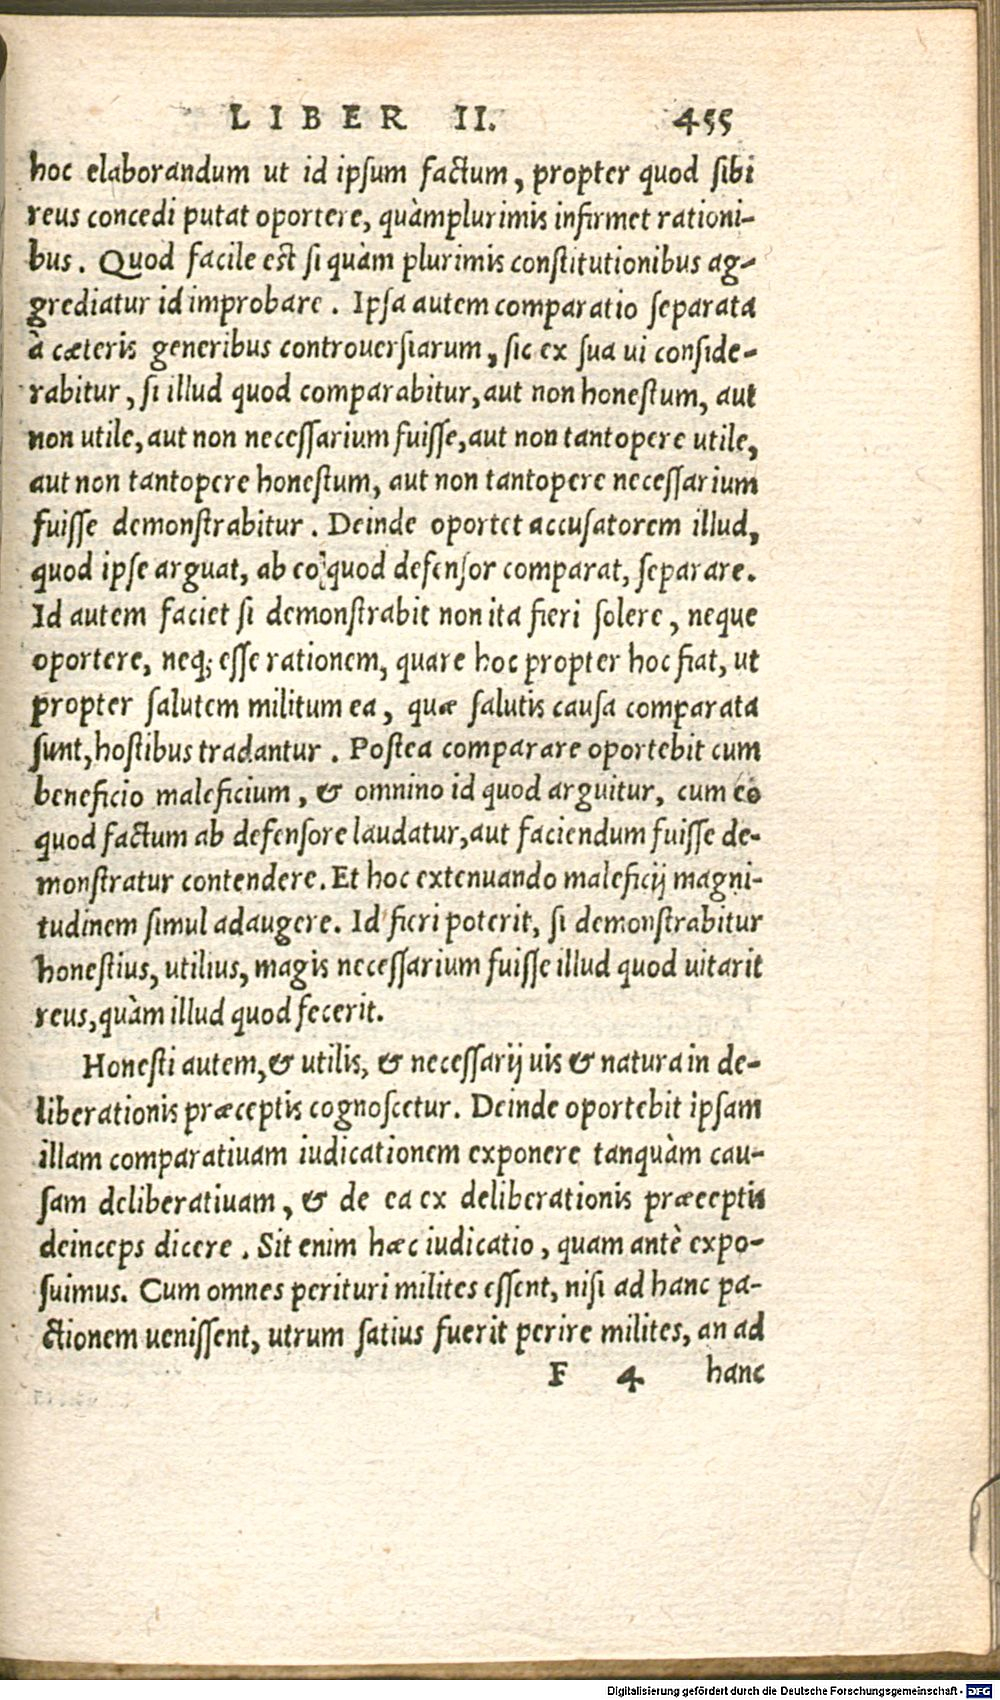 LIBER II. 455
hoc elaborandum ut id ipsum factum, propter quod sibi
reus concedi putat oportere, quàmplurimis infirmet rationi-
bus. Quod facile est si quàm plurimis constitutionibus ag-
grediatur id improbare. Ipsa autem comparatio separata
à cæteris generibus controuersiarum, sic ex sua ui conside-
rabitur, si illud quod comparabitur, aut non honestum, aut
non utile, aut non necessarium fuisse, aut non tantopere utile,
aut non tantopere honestum, aut non tantopere necessarium
fuisse demonstrabitur. Deinde oportet accusatorem illud,
quod ipse arguat, ab eo quod defensor comparat, separare.
Id autem faciet si demonstrabit non ita fieri solere, neque
oportere, neq; esse rationem, quare hoc propter hoc fiat, ut
propter salutem militum ea, quæ salutis causa comparata
sunt, hostibus tradantur. Postea comparare oportebit cum
beneficio maleficium, & omnino id quod arguitur, cum eo
quod factum ab defensore laudatur, aut faciendum fuisse de-
monstratur contendere. Et hoc extenuando maleficij magni-
tudinem simul adaugere. Id fieri poterit, si demonstrabitur
honestius, utilius, magis necessarium fuisse illud quod uitarit
reus, quàm illud quod fecerit.
Honesti autem, & utilis, & necessarij uis & natura in de-
liberationis præceptis cognoscetur. Deinde oportebit ipsam
illam comparatiuam iudicationem exponere tanquàm cau-
sam deliberatiuam, & de ea ex deliberationis præceptis
deinceps dicere. Sit enim hæc iudicatio, quam antè expo-
suimus. Cum omnes perituri milites essent, nisi ad hanc pa-
ctionem uenissent, utrum satius fuerit perire milites, an ad
F 4 hanc
Digitalisierung gefördert durch die Deutsche Forschungsgemeinschaft - DFG